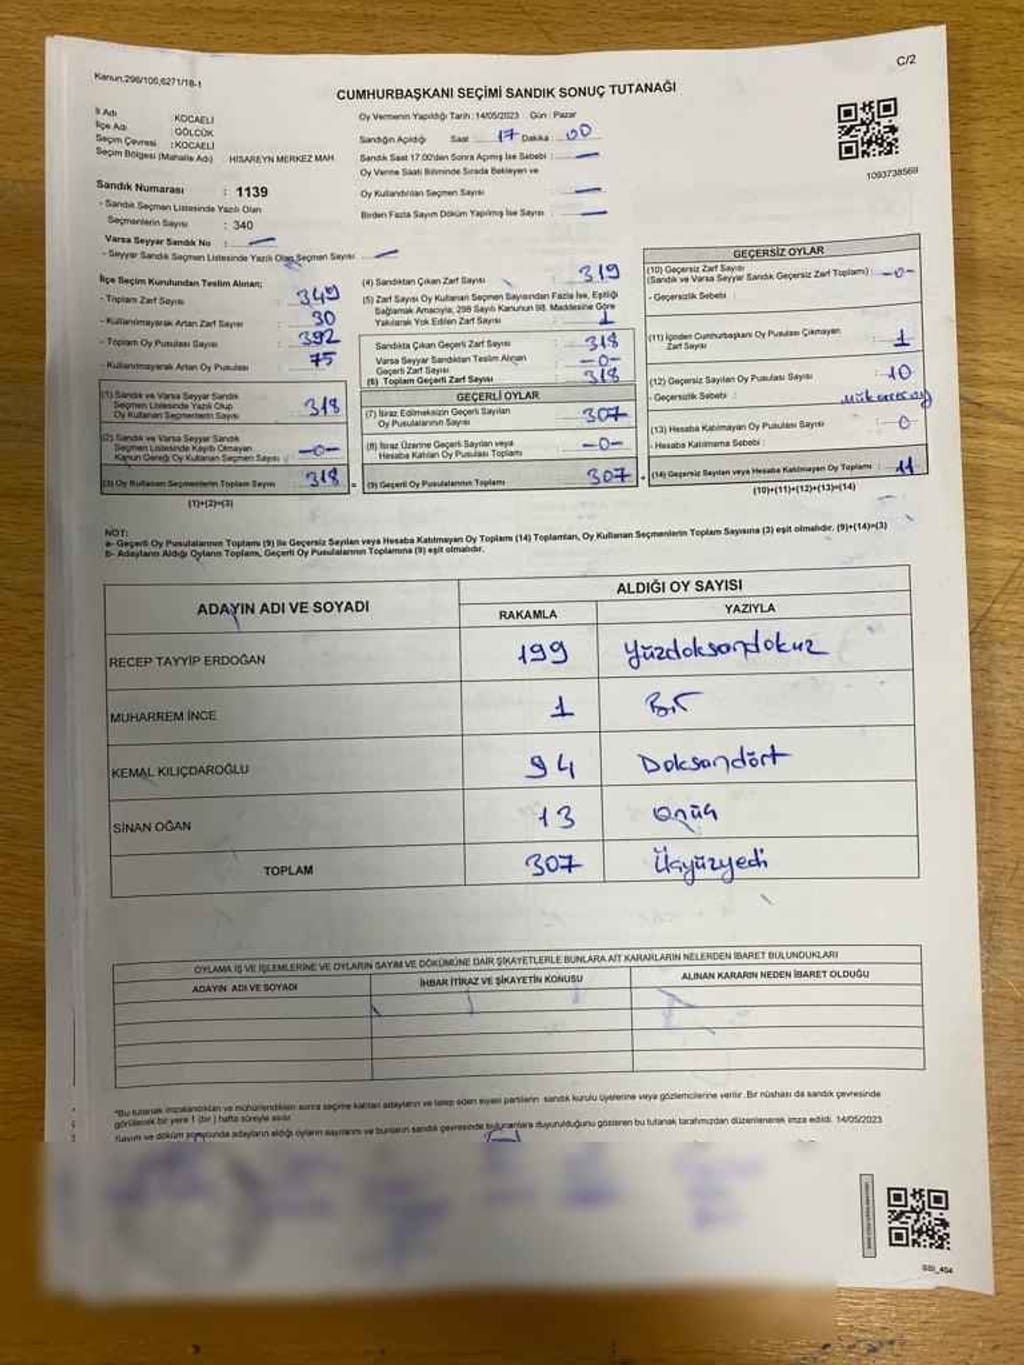 Kanun.298/105,6271/18-1
C/2
CUMHURBAŞKANI SEÇİMİ SANDIK SONUÇ TUTANAĞI
İl Adı : KOCAELİ
İlçe Adı : GÖLCÜK
Seçim Çevresi : KOCAELİ
Seçim Bölgesi (Mahalle Adı) HISAREYN MERKEZ MAH.
Sandık Numarası : 1139
- Sandık Seçmen Listesinde Yazılı Olan
Seçmenlerin Sayısı : 340
Varsa Seyyar Sandık No : —
- Seyyar Sandık Seçmen Listesinde Yazılı Olan Seçmen Sayısı : —
Oy Vermenin Yapıldığı Tarih : 14/05/2023 Gün : Pazar
Sandığın Açıldığı Saat 17 Dakika : 00
Sandık Saat 17.00'den Sonra Açılmış İse Sebebi : —
Oy Verme Saati Bitiminde Sırada Bekleyen ve
Oy Kullandırılan Seçmen Sayısı : —
Birden Fazla Sayım Döküm Yapılmış İse Sayısı : —
1093738569
İlçe Seçim Kurulundan Teslim Alınan;
- Toplam Zarf Sayısı : 349
- Kullanılmayarak Artan Zarf Sayısı : 30
- Toplam Oy Pusulası Sayısı : 392
- Kullanılmayarak Artan Oy Pusulası : 75
(1) Sandık ve Varsa Seyyar Sandık
Seçmen Listesinde Yazılı Olup
Oy Kullanan Seçmenlerin Sayısı : 318
(2) Sandık ve Varsa Seyyar Sandık
Seçmen Listesinde Kayıtlı Olmayan
Kanun Gereği Oy Kullanan Seçmen Sayısı : -0-
(3) Oy Kullanan Seçmenlerin Toplam Sayısı : 318
(1)+(2)=(3)
(4) Sandıktan Çıkan Zarf Sayısı : 319
(5) Zarf Sayısı Oy Kullanan Seçmen Sayısından Fazla İse, Eşitliği
Sağlamak Amacıyla, 298 Sayılı Kanunun 98. Maddesine Göre
Yakılarak Yok Edilen Zarf Sayısı : 1
Sandıkta Çıkan Geçerli Zarf Sayısı : 318
Varsa Seyyar Sandıktan Teslim Alınan
Geçerli Zarf Sayısı : -0-
(6) Toplam Geçerli Zarf Sayısı : 318
GEÇERLİ OYLAR
(7) İtiraz Edilmeksizin Geçerli Sayılan
Oy Pusulalarının Sayısı : 307
(8) İtiraz Üzerine Geçerli Sayılan veya
Hesaba Katılan Oy Pusulası Toplamı : -0-
= (9) Geçerli Oy Pusulalarının Toplamı : 307
GEÇERSİZ OYLAR
(10) Geçersiz Zarf Sayısı
(Sandık ve Varsa Seyyar Sandık Geçersiz Zarf Toplamı) : -0-
- Geçersizlik Sebebi :
(11) İçinden Cumhurbaşkanı Oy Pusulası Çıkmayan
Zarf Sayısı : 1
(12) Geçersiz Sayılan Oy Pusulası Sayısı : 10
- Geçersizlik Sebebi : Mükerreroy
(13) Hesaba Katılmayan Oy Pusulası Sayısı : -0-
- Hesaba Katılmama Sebebi :
+ (14) Geçersiz Sayılan veya Hesaba Katılmayan Oy Toplamı : 11
(10)+(11)+(12)+(13)=(14)
NOT:
a- Geçerli Oy Pusulalarının Toplamı (9) ile Geçersiz Sayılan veya Hesaba Katılmayan Oy Toplamı (14) Toplamları, Oy Kullanan Seçmenlerin Toplam Sayısına (3) eşit olmalıdır. (9)+(14)=(3)
b- Adayların Aldığı Oyların Toplamı, Geçerli Oy Pusulalarının Toplamına (9) eşit olmalıdır.
ADAYIN ADI VE SOYADI ALDIĞI OY SAYISI
RAKAMLA YAZIYLA
RECEP TAYYİP ERDOĞAN 199 Yüzdoksandokuz
MUHARREM İNCE 1 Bir
KEMAL KILIÇDAROĞLU 94 Doksandört
SİNAN OĞAN 13 Onüç
TOPLAM 307 Üçyüzyedi
OYLAMA İŞ VE İŞLEMLERİNE VE OYLARIN SAYIM VE DÖKÜMÜNE DAİR ŞİKAYETLERLE BUNLARA AİT KARARLARIN NELERDEN İBARET BULUNDUKLARI
ADAYIN ADI VE SOYADI İHBAR İTİRAZ VE ŞİKAYETİN KONUSU ALINAN KARARIN NEDEN İBARET OLDUĞU
*Bu tutanak imzalandıktan ve mühürlendikten sonra seçime katılan adayların ve talep eden siyasi partilerin sandık kurulu üyelerine veya gözlemcilerine verilir. Bir nüshası da sandık çevresinde
görülecek bir yere 1 (bir) hafta süreyle asılır.
Sayım ve döküm sonucunda adayların aldığı oyların sayılarını ve bunların sandık çevresinde bulunanlara duyurulduğunu gösteren bu tutanak tarafımızdan düzenlenerek imza edildi. 14/05/2023
SSI_404